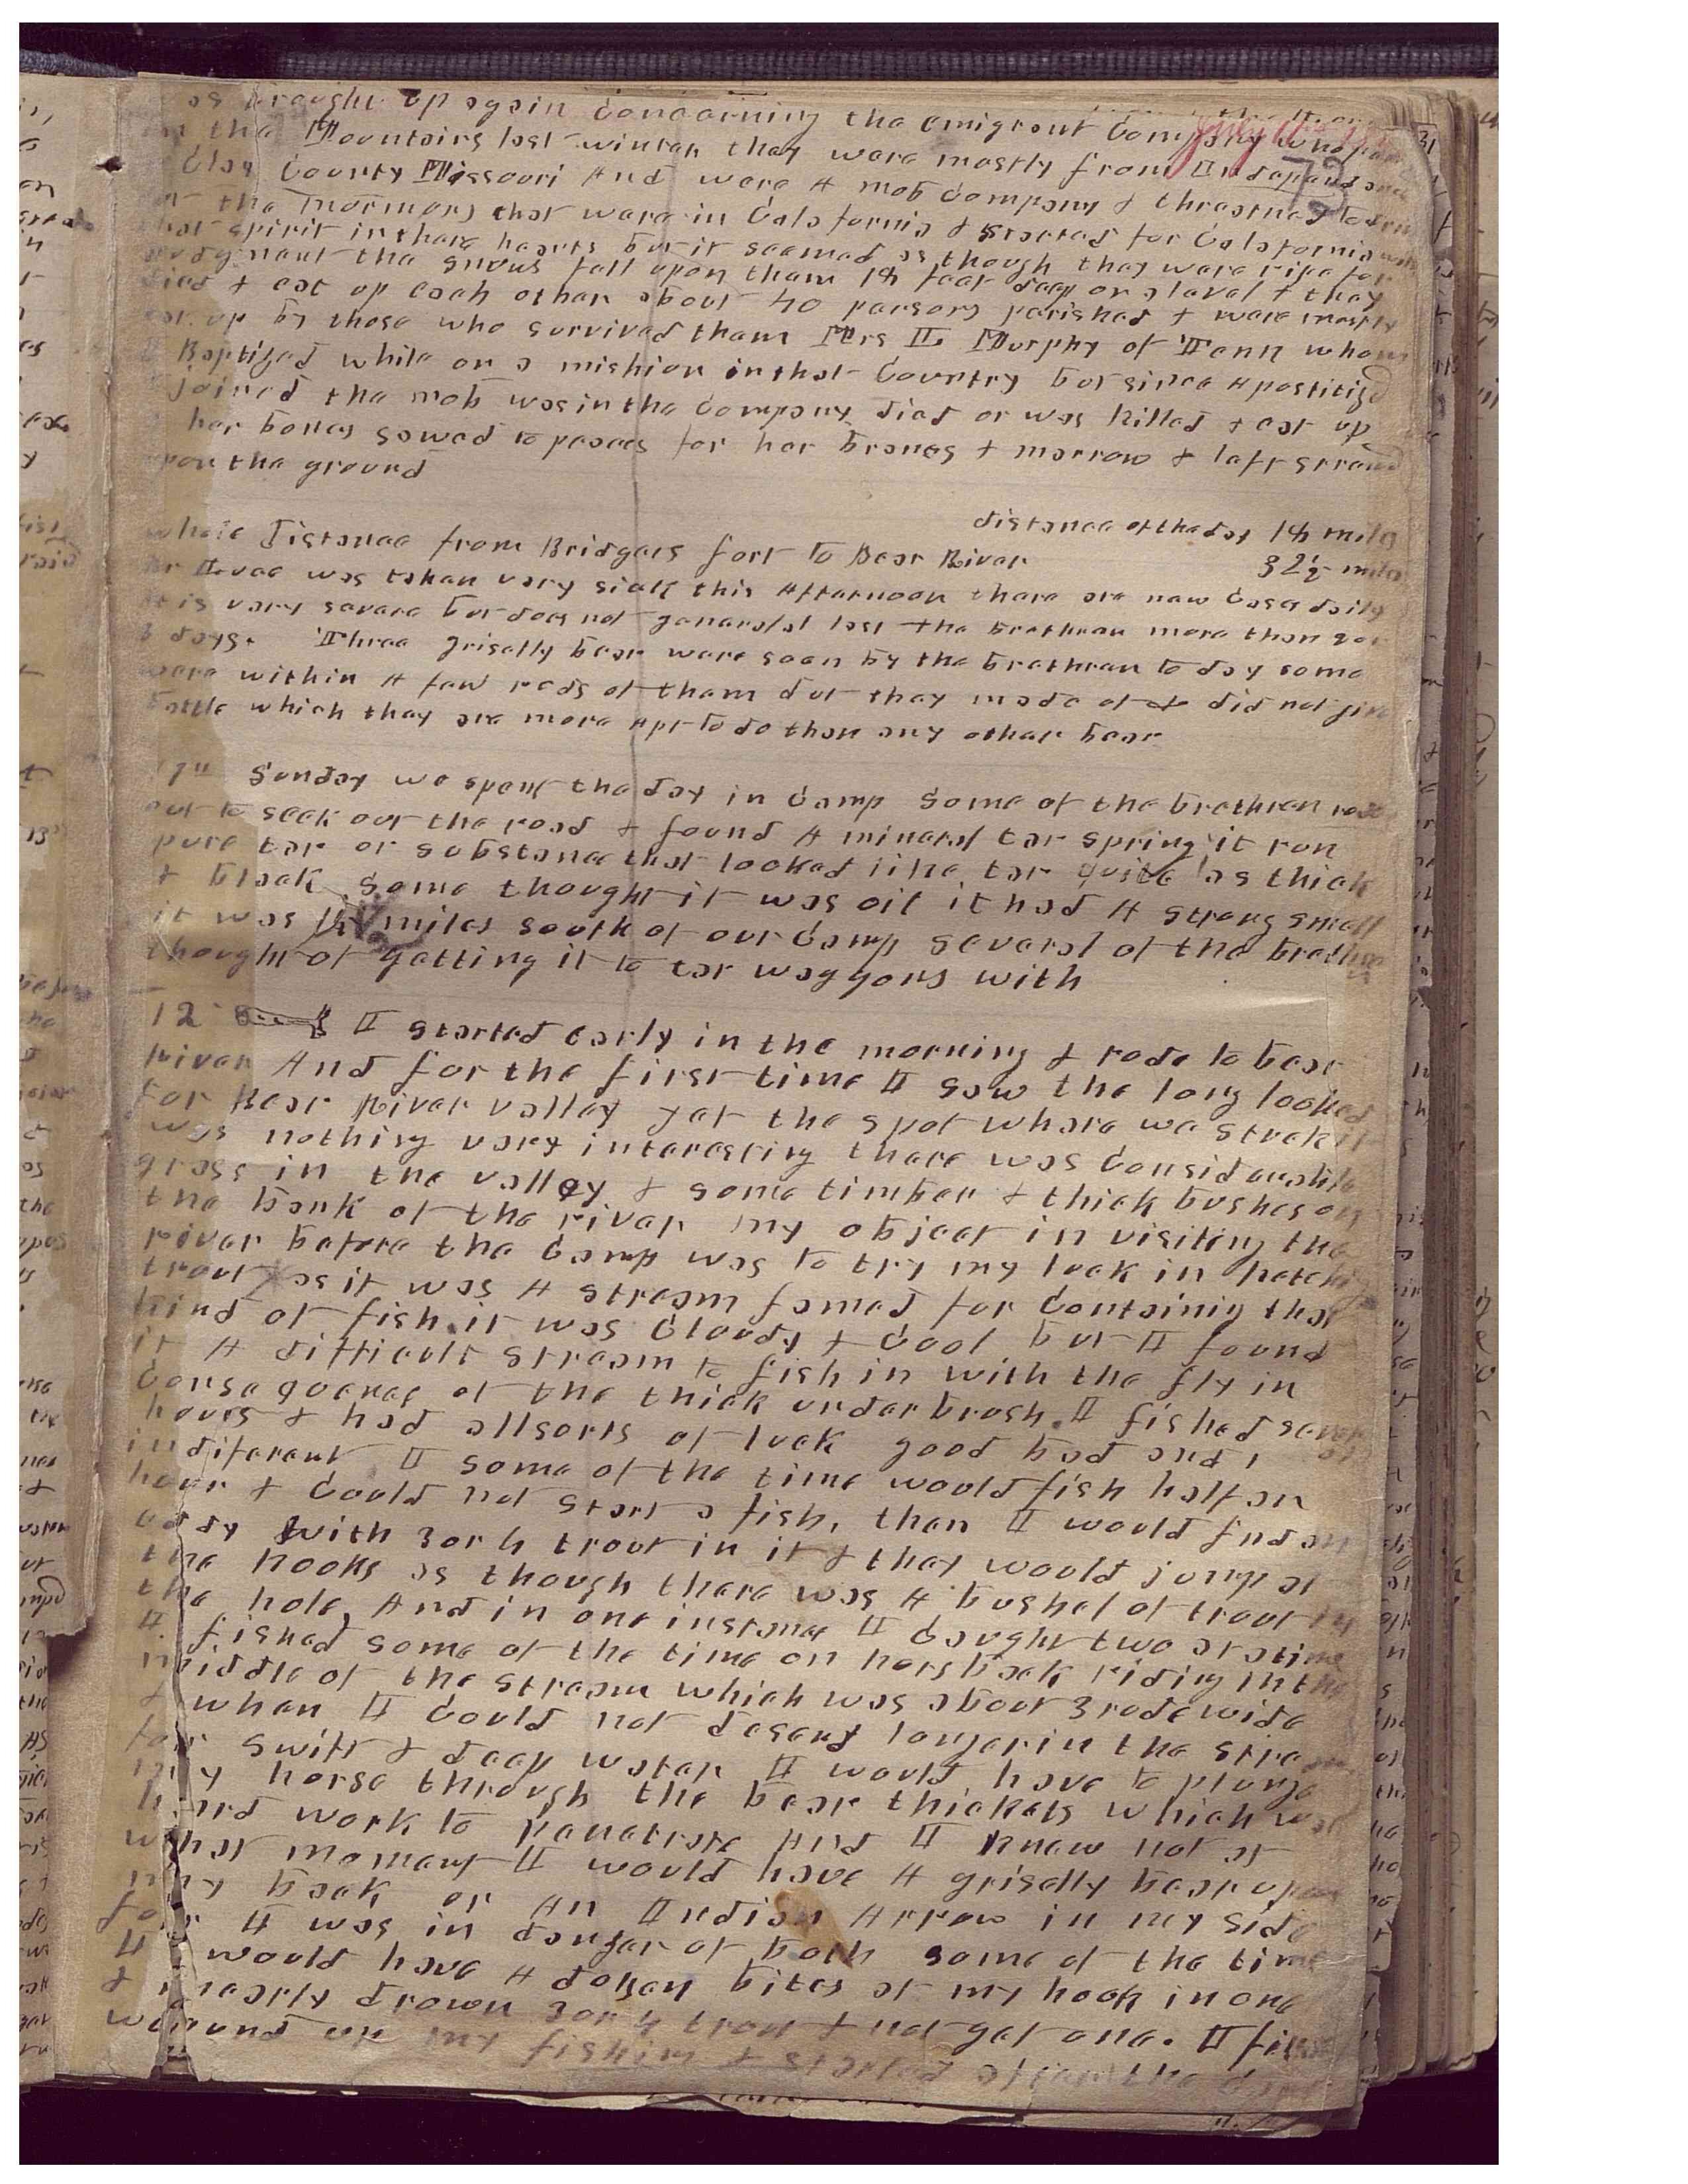 as brought up again Concerning the emigrant Company who
in the Mountains last winter they were mostly from Independance
Clay County Missouri And were A mob Company & threatned to
the Mormons that were in Calafornia & started for Calafornia with
that spirit in thare hearts but it seemed as though they were ripe for
Judgment the snows fell upon them 18 feet deep on a lavel & they
died & eat up each other about 40 persons parished & were mostly
eat up by those who survived them Mrs L Murphy of Tenn whom
I Baptized while on a mishion in that Country but since Apostitized
& joined the mob was in the Company died or was killed & eat up
her bones sawed to peaces for her branes & marrow & left strewd
upon the ground
distance of the day 18 miles
whole Distance from Bridgers fort to Bear River 32½ miles
was taken very sick this Afternoon there are new Cases daily
It is very severe but does not generalal last the brethren more than 2 or
3 days. Three griselly bear were seen by the brethren to day some
were within A few rods of them but they made of did not give
battle which they are more apt to do than any other bear
Sunday we spent the day in Camp some of the brethren
out to seek out the road & found A mineral tar spring it run
pure tar or substance that looked like tar quite as thick
& black some thought it was oil it had A strong smell
it was miles south of our Camp several of the brethren
thought of getting it to tar waggons with
12 I started early in the morning & rode to bear
River And for the first time I saw the long looked
for Bear River valley yet the spot where we struck it
was nothing very interesting there was Considerable
grass in the valley & some timber & thick bushes on
the bank of the river my object in visiting the
river before the Camp was to try my luck in ketching
trout as it was A stream famed for Containing that
kind of fish it was Cloudy & Cool but I found
it A difficult stream to fish in with the fly in
Consequence of the thick underbrush. I fished several
hours & had all sorts of luck good bad and
indiferent I some of the time would fish half an
hour & Could not start a fish, then I would find an
eddy with 3 or 4 trout in it & they would jump at
the hooks as though there was A bushel of trout in
the hole, And in one instance I Caught two at a time
I fished some of the time on horsback riding in the
middle of the stream which was about 3 rods wide
& when I Could not desend longer in the stream
for swift & deep water I would have to plunge
my horse through the bear thickets which was
hard work to penetrate And I knew not at
what moment I would have A griselly bear upon
my back or An Indian Arrow in my side
for I was in danger of both some of the time
I would have A dozen bites at my hook in one
& nearly drown 3 or 4 trout & not get one. I
wound up my fishing & started